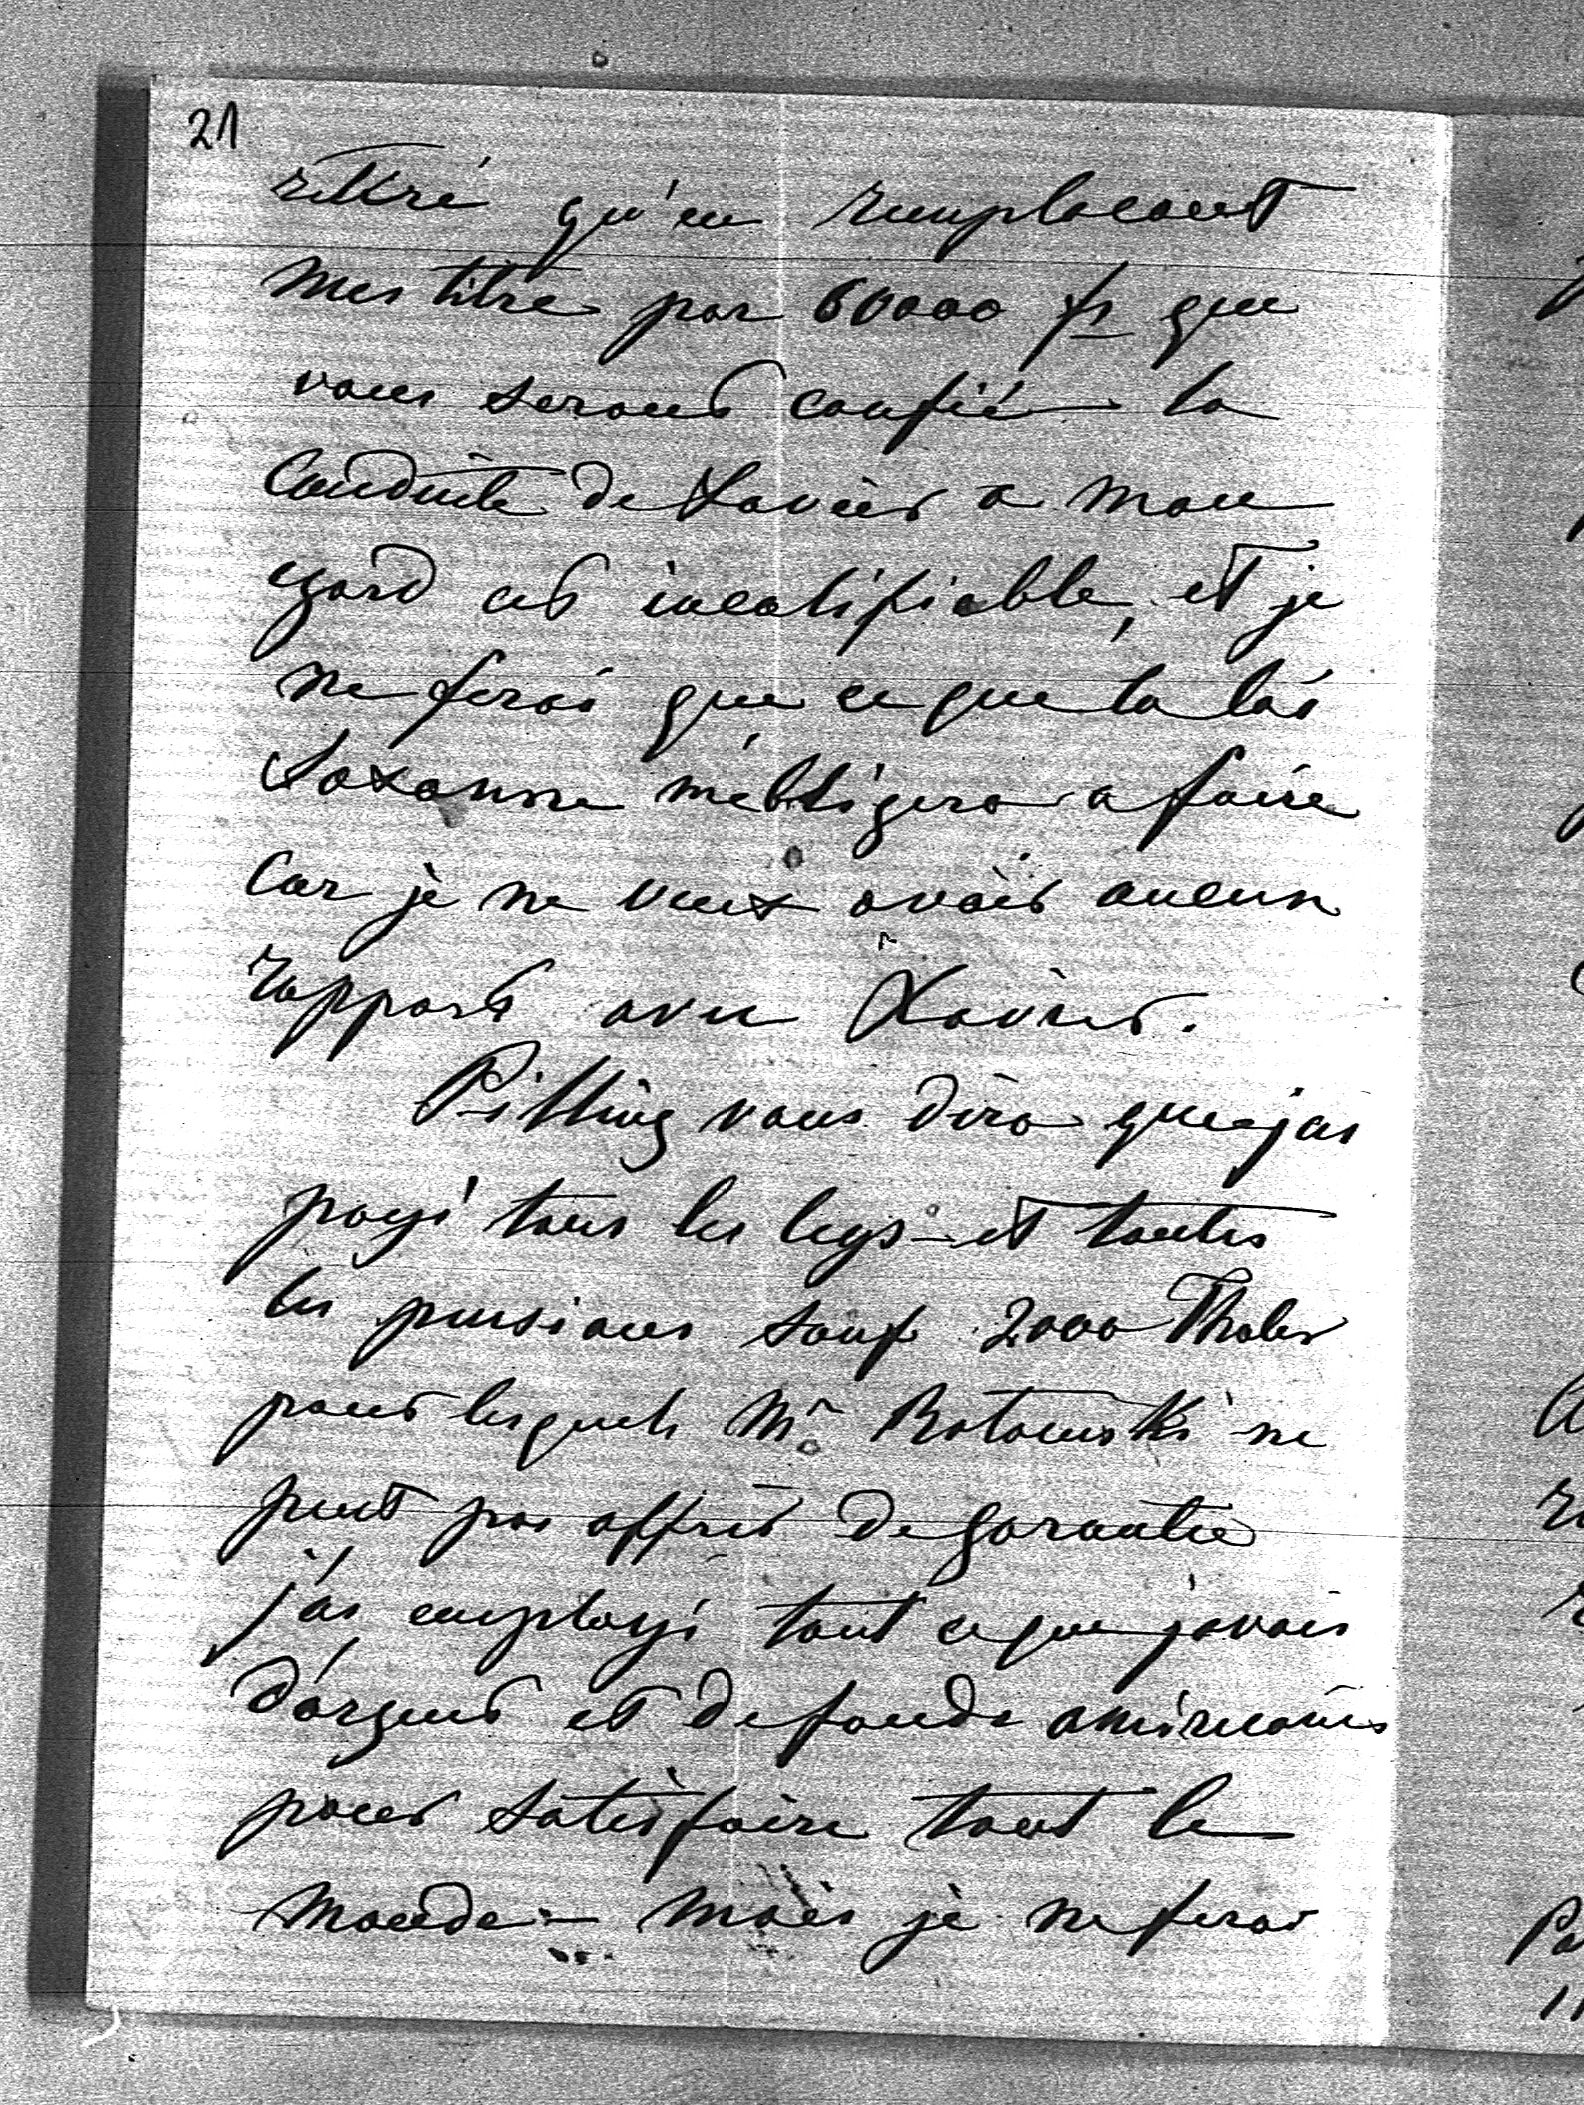 21
rettré qu'en remplacant
mes titre par 60000 fr que
vous seront confié la
Conduite de Xavier a mon
egard est incalifiable, et je
ne ferai que ce que la loi
Saxonne m'obligera a faire
Car je ne veux avoir aucun
rapport avec Xavier.
Pilling vous dira que jai
payé tous les legs et toutes
les pensions sauf 2000 Thaler
pour lesquels Mr Rotowski ne
peut pas offrir de garantie
j'ai employé tout ce que javais
d'argent et de fonds américains
pour satisfaire tout le
monde - mais je ne ferai